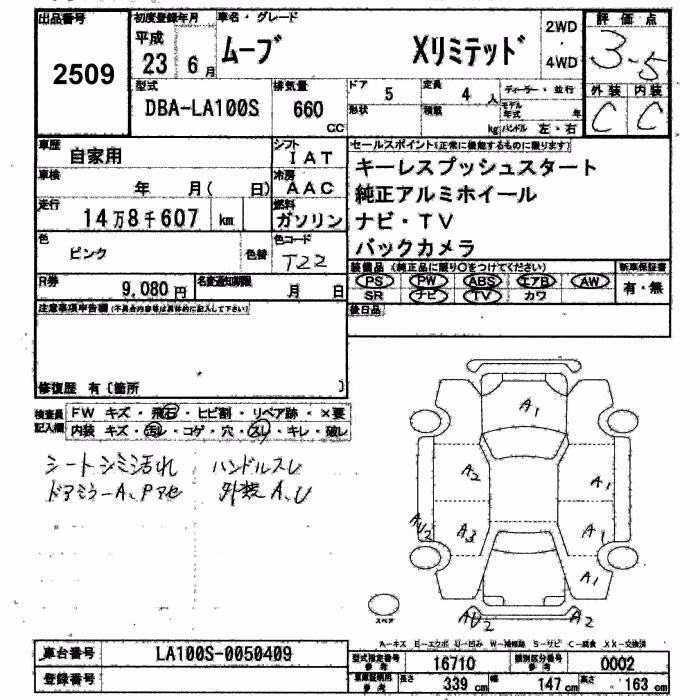 出品番号 2509
初度登録年月 平成 23年 6月
車名・グレード ムーブ Xリミテッド
2WD
4WD
評価点 3.5
型式 DBA-LA100S
排気量 660 cc
ドア 5
定員 4人
ディーラー・並行
形状 積載 kg
モデル年式 年
ハンドル 左・右
外装 C 内装 C
車歴 自家用
シフト IAT
セールスポイント(正常に機能するものに限ります)
車検 年 月( 日)
冷房 AAC
キーレスプッシュスタート
純正アルミホイール
走行 14万8千607 km
燃料 ガソリン
ナビ・TV
バックカメラ
色 ピンク 色替
色コード T22
装備品 (純正品に限り○をつけてください)
新車保証書
PS PW ABS エアB AW
有・無
SR ナビ TV カワ
R券 9,080円
名変通知期限 月 日
後日品
注意事項申告欄(不具合内容等は具体的に記入して下さい)
修復歴 有〔箇所 〕
検査員記入欄
FW キズ・飛石・ヒビ割・リペア跡・×要
内装 キズ・汚レ・コゲ・穴・スレ・キレ・破レ
シートシミ汚れ ハンドルスレ
ドアミラーA、Pアセ 外装A、U
A1
A2 A1
AU2 A3 A1
A1
AU2 A2
スペア
A-キズ E-エクボ U-凹み W-補修跡 S-サビ C-腐食 XX-交換済
車台番号 LA100S-0050409
登録番号
型式指定番号 参考 16710
類別区分番号 参考 0002
車庫証明用 参考 長さ 339 cm 幅 147 cm 高さ 163 cm